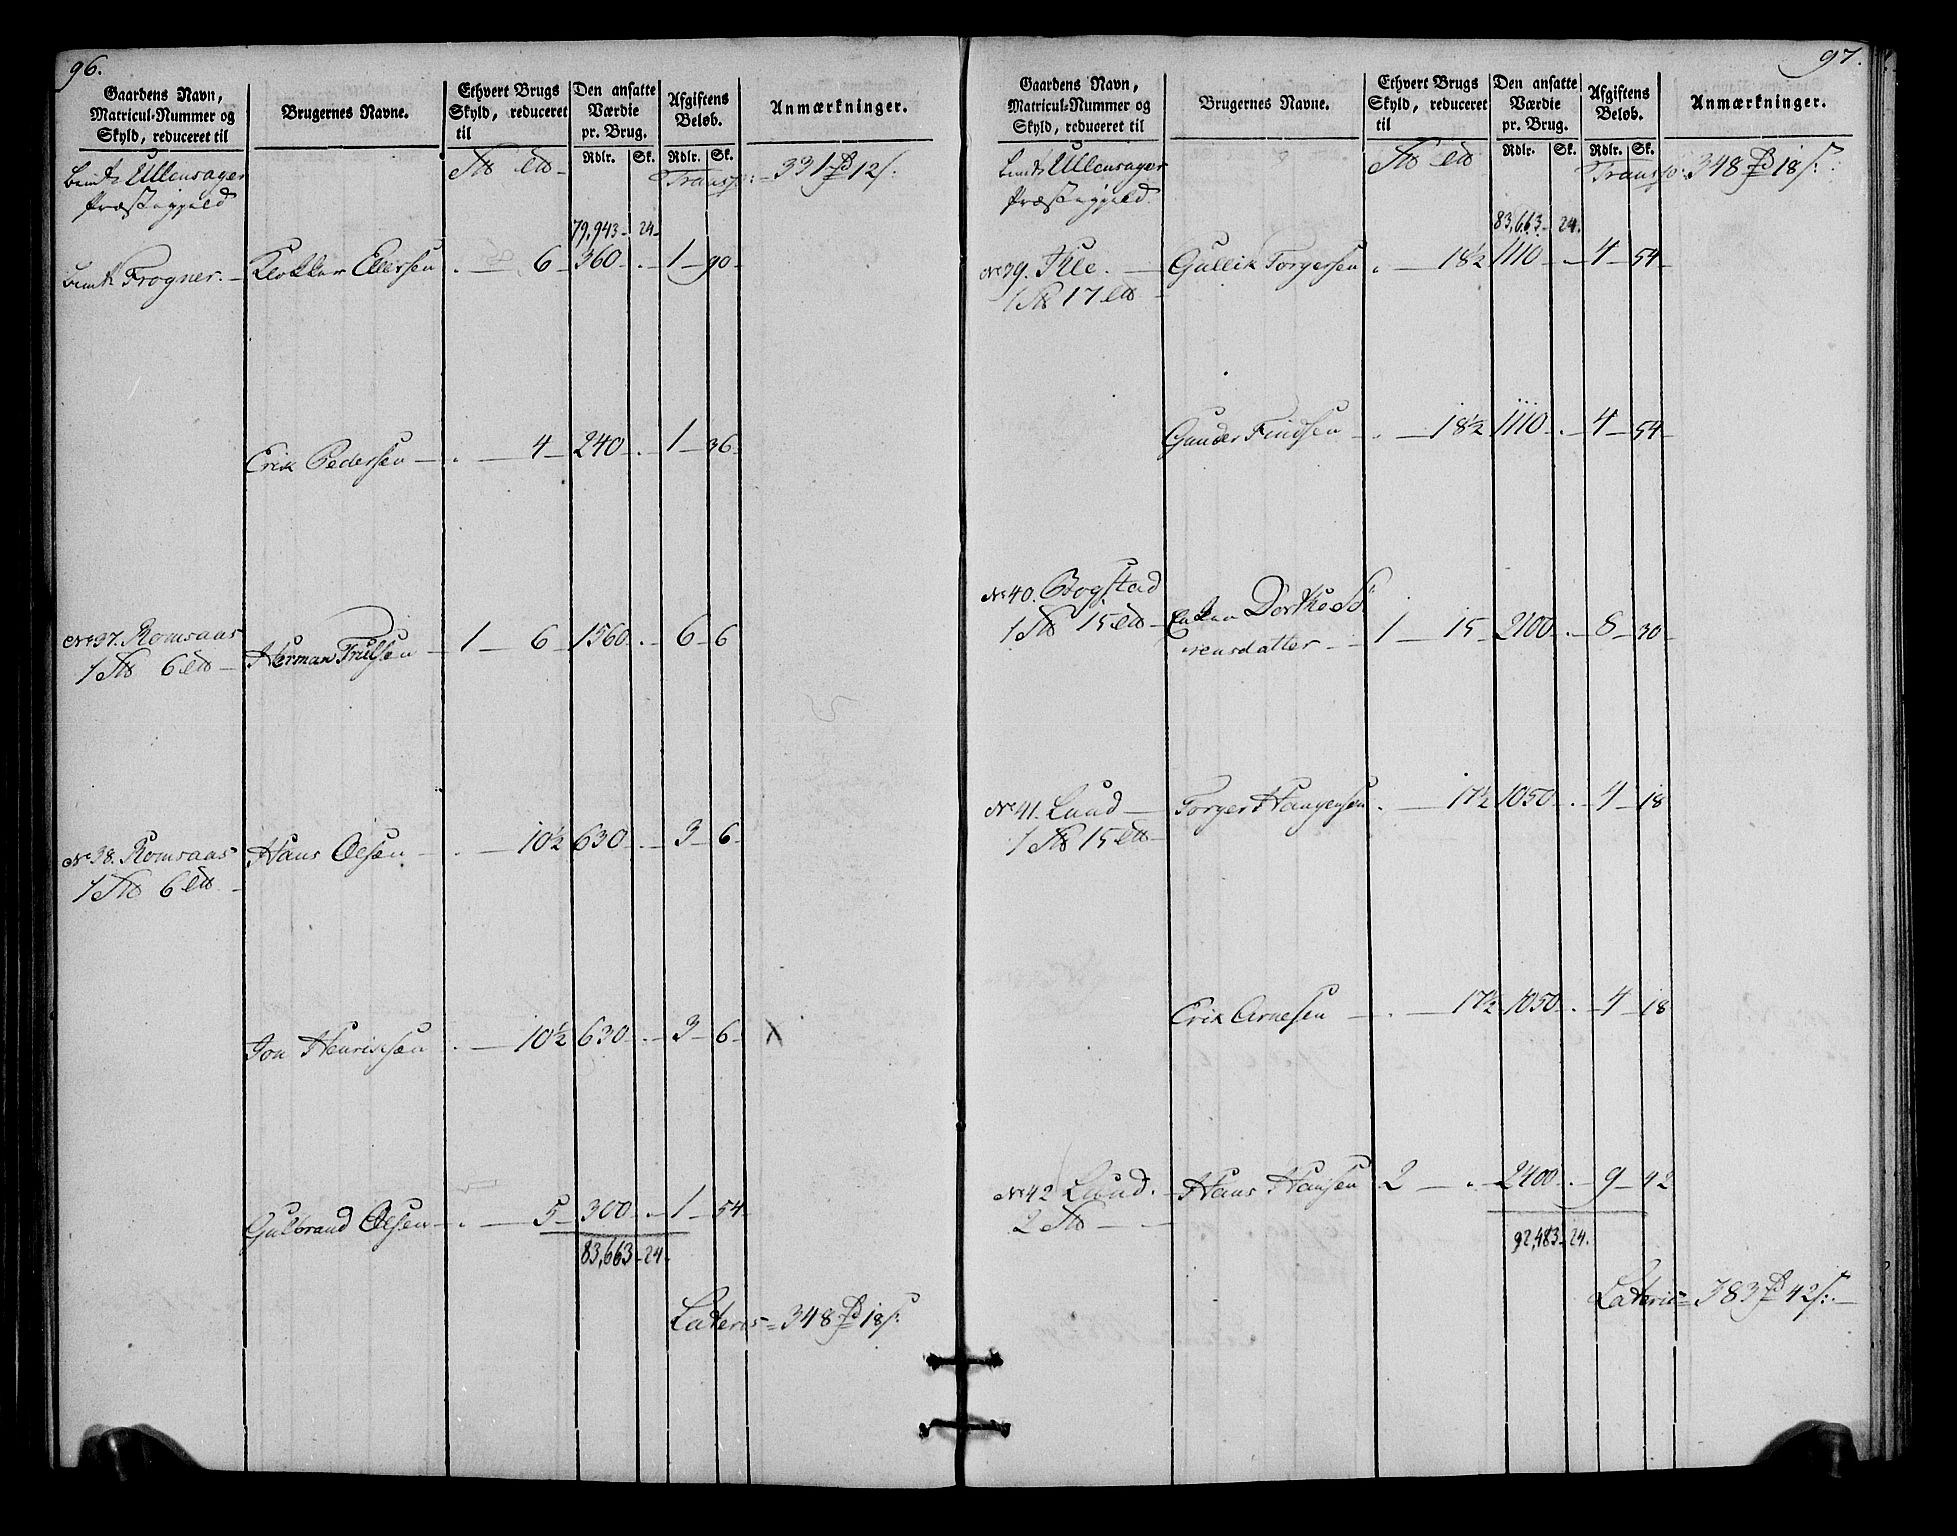 96.
Gaardens Navn, Matricul-Nummer og Skyld, reduceret til
Brugernes Navne.
Ethvert Brugs Skyld, reduceret til
Den ansatte Værdie pr. Brug.
Afgiftens Beløb.
Anmærkninger.
Rdlr. Sk. Rdlr. Sk.
Ullensager Transp: 331 12
Præstegjeld
79,943 24
Frogner. Klokker Ellersen . 6 360 . 1 90
Erik Pedersen . 4 240 . 1 36
No 37. Romsaas
1 6 Herman Trulsen 1 6 1560 . 6 6
No 38. Romsaas Hans Olsen . 10½ 630 . 3 6
1 6
Jon Henriksen . 10½ 630 . 3 6 X
Gulbrand Olsen . 5 300 . 1 54
83,663 24
Lateris 348 18
97.
Gaardens Navn, Matricul-Nummer og Skyld, reduceret til
Brugernes Navne.
Ethvert Brugs Skyld, reduceret til
Den ansatte Værdie pr. Brug.
Afgiftens Beløb.
Anmærkninger.
Rdlr. Sk. Rdlr. Sk.
Ullensager Transp: 348 18
Præstegjeld.
83,663 24.
No 39. Gullik Torgersen . 18½ 1110 . 4 54
1 17
Gunder Findsen . 18½ 1110 . 4 54
No 40. Bogstad
1 15 Enken Dorthe
datter 1 15 2100 . 8 30
No 41. Lund Torger . 17½ 1050 . 4 18
1 15
Erik Arnesen . 17½ 1050 . 4 18
No 42 Lund. Hans Hansen 2 . 2400 . 9 42
2
92,483 24.
Lateris 383 42